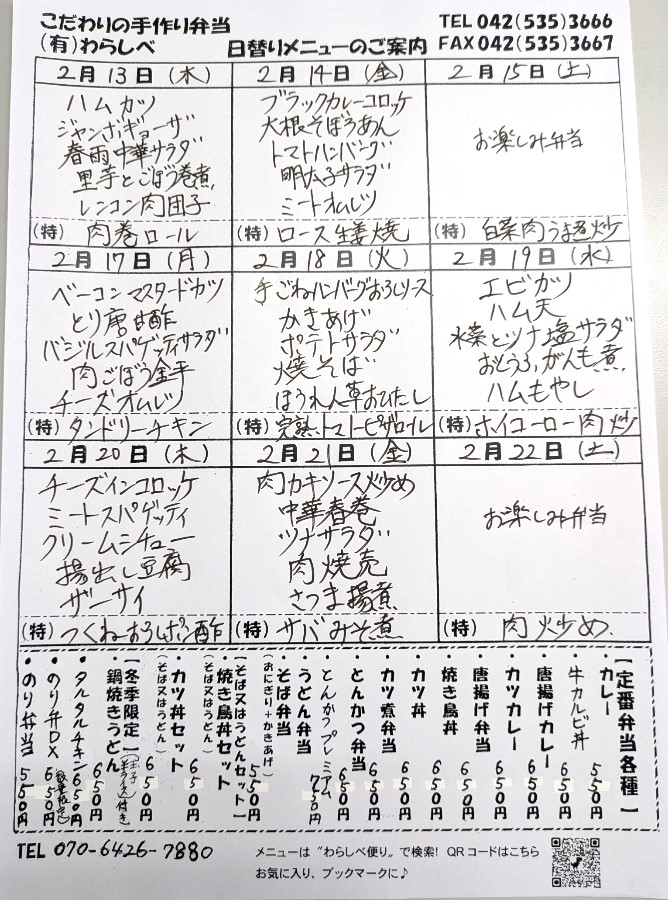 こだわりの手作り弁当
(有)わらしべ
日替りメニューのご案内
TEL 042(535)3666
FAX 042(535)3667
2月13日(木)
ハムカツ
ジャンボギョーザ
春雨中華サラダ
里芋とごぼう巻煮
レンコン肉団子
(特) 肉巻ロール
2月14日(金)
ブラックカレーコロッケ
大根そぼろあん
トマトハンバーグ
明太子サラダ
ミートオムレツ
(特) ロース生姜焼
2月15日(土)
お楽しみ弁当
(特) 白菜肉うま煮炒
2月17日(月)
ベーコンマスタードカツ
とり唐甘酢
バジルスパゲッティサラダ
肉ごぼう金平
チーズオムレツ
(特) タンドリーチキン
2月18日(火)
手ごねハンバーグおろしソース
かきあげ
ポテトサラダ
焼そば
ほうれん草おひたし
(特) 完熟トマトピザロール
2月19日(水)
エビカツ
ハム天
水菜とツナ塩サラダ
おとうふ,がんも煮
ハムもやし
(特) ホイコーロー肉炒
2月20日(木)
チーズインコロッケ
ミートスパゲッティ
クリームシチュー
揚出し豆腐
ザーサイ
(特) つくねおろしポン酢
2月21日(金)
肉カキソース炒め
中華春巻
ツナサラダ
肉焼売
さつま揚煮
(特) サバみそ煮
2月22日(土)
お楽しみ弁当
(特) 肉炒め
【定番弁当各種】
・カレー 550円
・牛カルビ丼 650円
・唐揚げカレー 650円
・カツカレー 650円
・唐揚げ弁当 650円
・焼き鳥丼 650円
・カツ丼 650円
・カツ煮弁当 650円
・とんかつ弁当 650円
・とんかつプレミアム 750円
・うどん弁当
・そば弁当
(おにぎり+かきあげ) 550円
【そば又はうどんセット】
・焼き鳥丼セット
(そば又はうどん) 650円
・カツ丼セット
(そば又はうどん) 650円
【冬季限定】
・鍋焼きうどん 650円
・タルタルチキン 650円
・のり弁DX 650円
・のり弁当 550円
TEL 070-6426-7880
メニューは〝わらしべ便り〟で検索! QRコードはこちら
お気に入り、ブックマークに♪